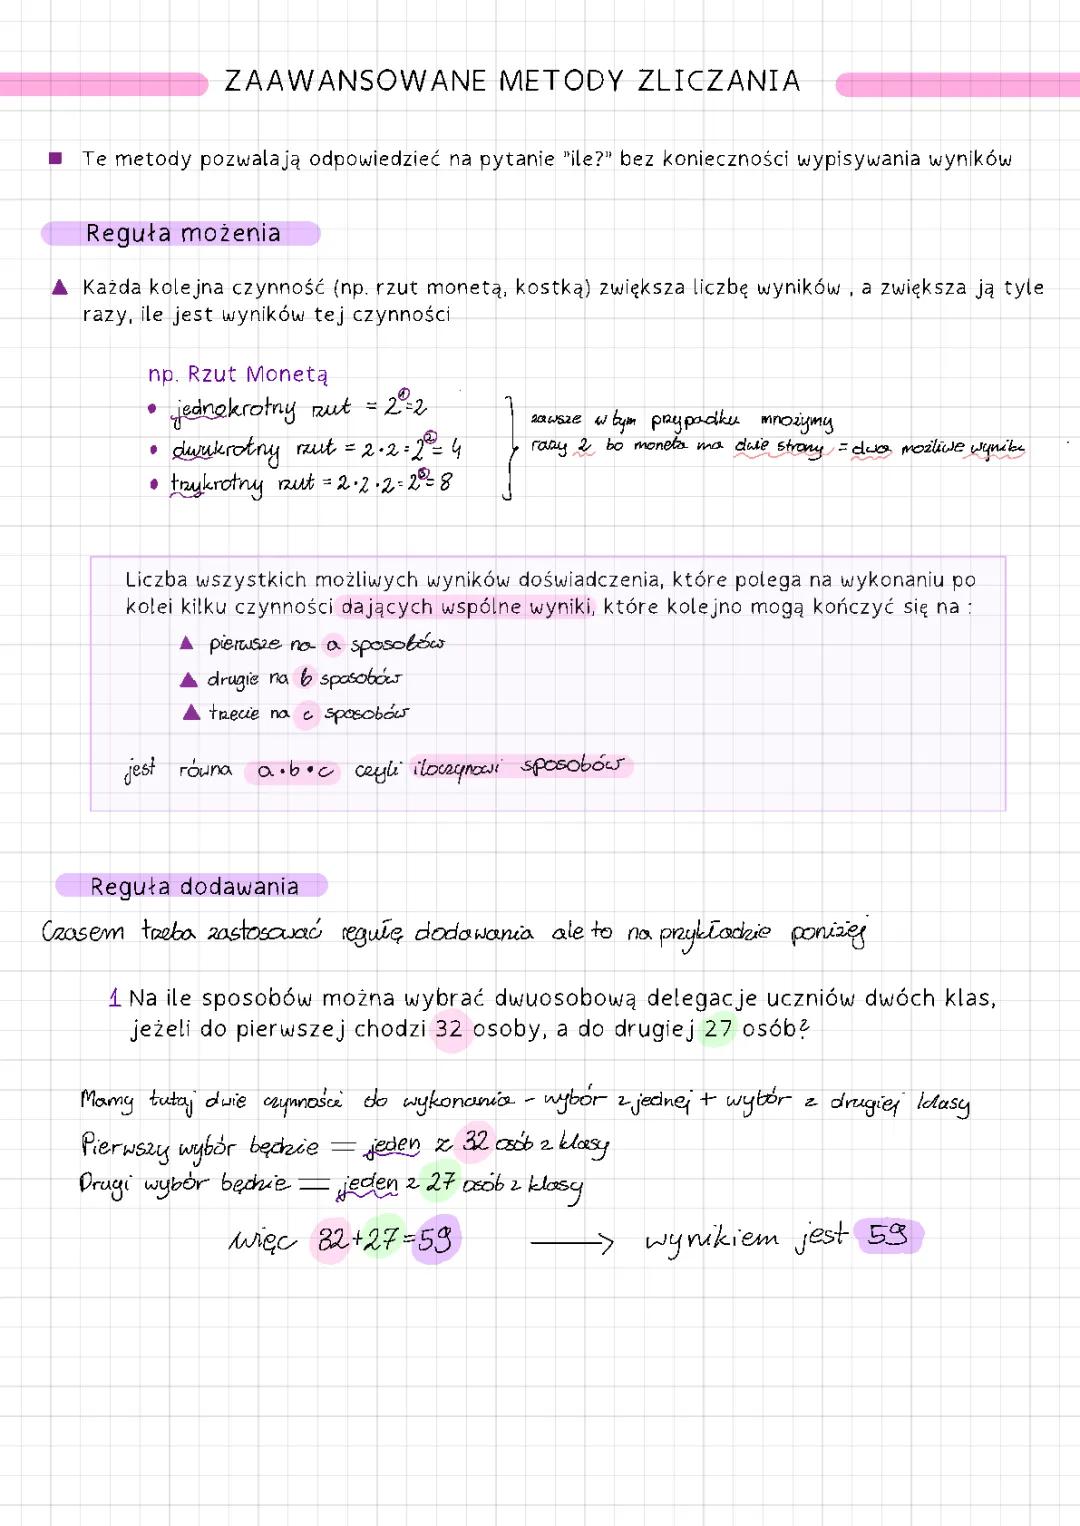 ZAAWANSOWANE METODY ZLICZANIA
Te metody pozwalają odpowiedzieć na pytanie "ile?" bez konieczności wypisywania wyników
Reguła możenia
Każda kolejna czynność (np. rzut monetą, kostką) zwiększa liczbę wyników , a zwiększa ją tyle
razy, ile jest wyników tej czynności
np. Rzut Monetą
• jednokrotny rzut = 2¹=2
• dwukrotny rzut = 2·2=2²=4
• trzykrotny rzut = 2·2·2=2³=8
zawsze w tym przypadku mnożymy
razy 2 bo moneta ma dwie strony = dwa możliwe wyniki
Liczba wszystkich możliwych wyników doświadczenia, które polega na wykonaniu po
kolei kilku czynności dających wspólne wyniki, które kolejno mogą kończyć się na :
pierwsze na a sposobów
drugie na b sposobów
trzecie na c sposobów
jest równa a·b·c czyli iloczynowi sposobów
Reguła dodawania
Czasem trzeba zastosować regułę dodawania ale to na przykładzie poniżej
1 Na ile sposobów można wybrać dwuosobową delegacje uczniów dwóch klas,
jeżeli do pierwszej chodzi 32 osoby, a do drugiej 27 osób?
Mamy tutaj dwie czynności do wykonania - wybór z jednej + wybór z drugiej klasy
Pierwszy wybór będzie = jeden z 32 osób z klasy
Drugi wybór będzie = jeden z 27 osób z klasy
więc 32+27=59 → wynikiem jest 59